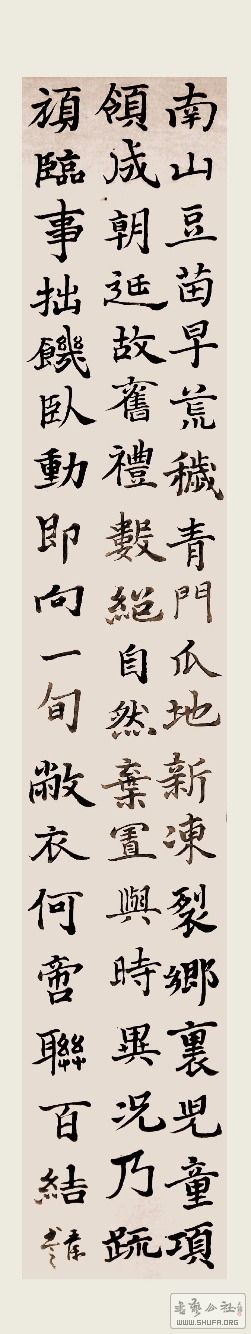 南山豆苗早荒穢青門瓜地新凍裂鄉裏兒童項
領成朝廷故舊禮數絕自然棄置與時異况乃疏
頑臨事拙饑臥動即向一旬敝衣何啻聯百結
書藝公社
WWW.SHUFA.ORG